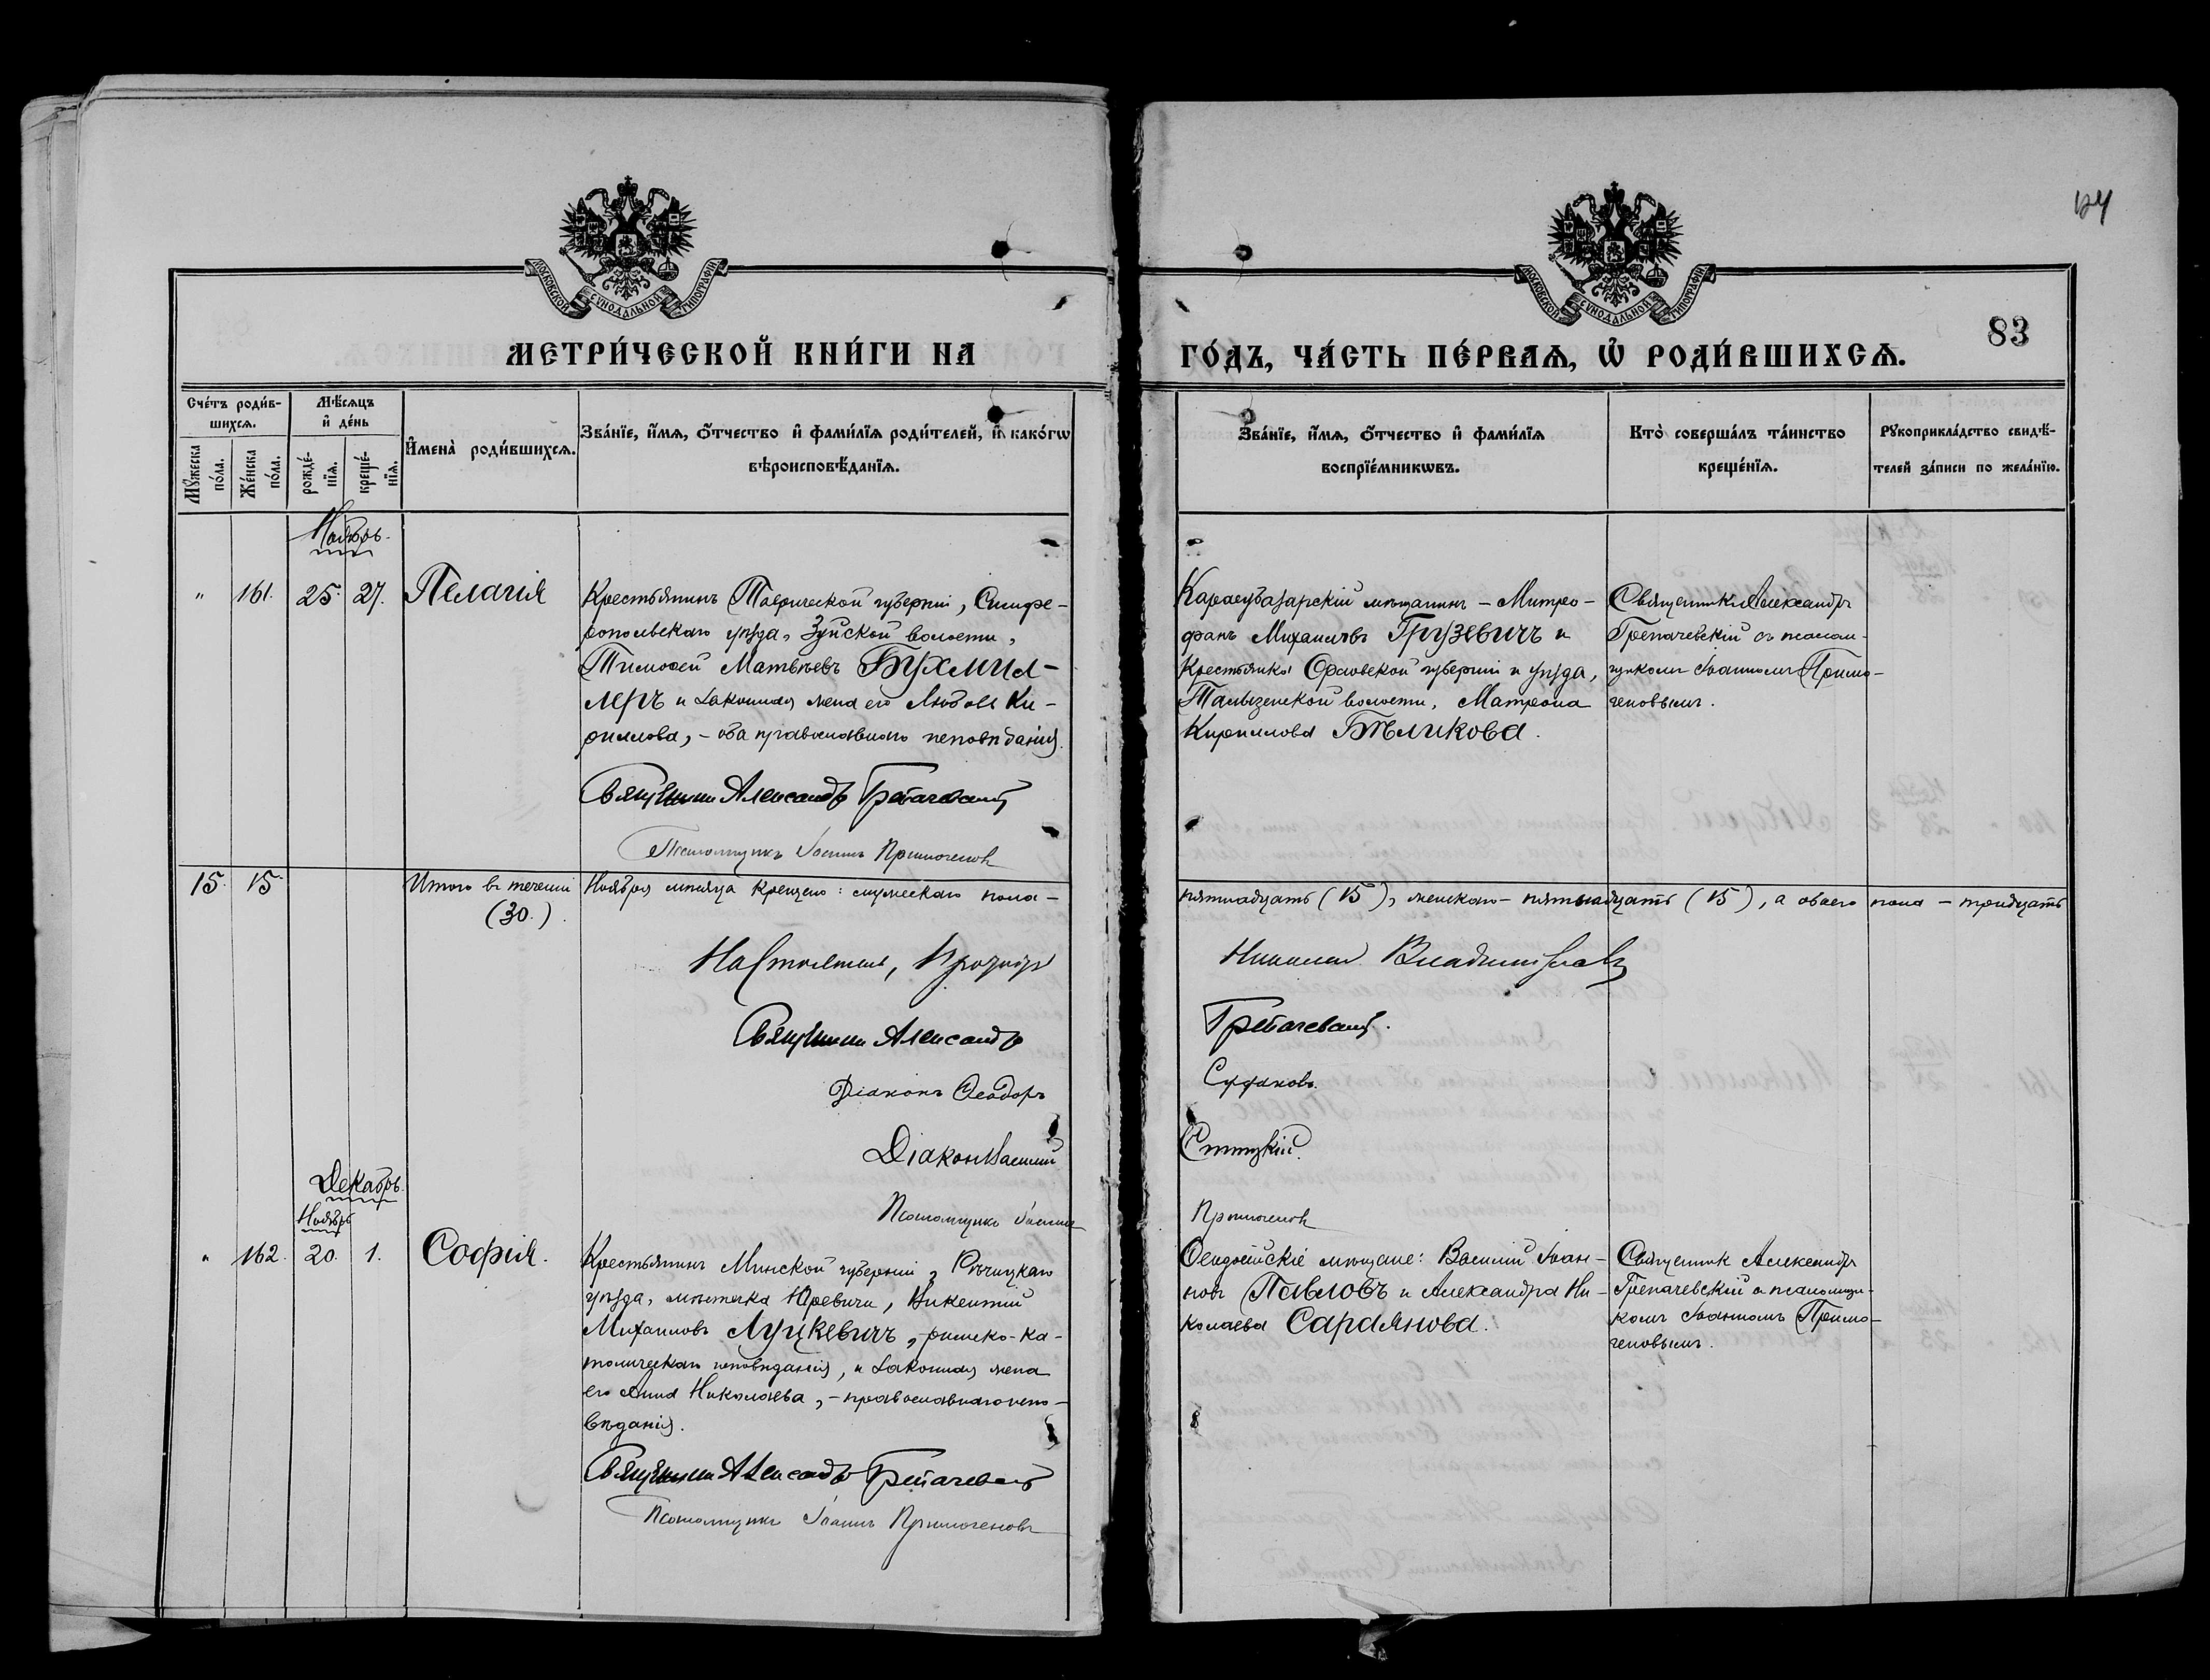 124
МОСКОВСКОЙ СУНОДАЛЬНОЙ ТИПОГРАФІИ
МОСКОВСКОЙ СУНОДАЛЬНОЙ ТИПОГРАФІИ
83
МЕТРИ́ЧЕСКОЙ КНИ́ГИ НА
ГО́ДЪ, ЧА́СТЬ ПЕ́РВАѦ, Ѡ РОДИ́ВШИХСѦ.
Сче́тъ роди́в-
шихсѧ.
Мѣ́сѧцъ
и҆ де́нь
Мꙋ́жеска по́ла.
Же́нска по́ла.
рожде́-
нїѧ.
креще́-
нїѧ.
И҆мена̀ роди́вшихсѧ.
Зва́нїе, и҆́мѧ, ѻ҆́тчество и҆ фами́лїѧ роди́телей, и҆ како́гѡ
вѣроисповѣ́данїѧ.
Зва́нїе, и҆́мѧ, ѻ҆́тчество и҆ фами́лїѧ
воспрїе́мникѡвъ.
Кто̀ соверша́лъ та́инство
креще́нїѧ.
Рꙋкоприкла́дство свидѣ́-
телей за́писи по жела́нїю.
Ноябрь.
" 161. 25. 27. Пелагія
Крестьянинъ Таврической губерніи, Симфе-
ропольскаго уѣзда, Зуйской волости,
Тимофей Матвѣевъ Бухмил-
леръ и законная жена его Любовь Ки-
риллова, - оба православнаго исповѣданія.
Священникъ Александръ Грепачевскій
Псаломщикъ Іоаннъ Примогеновъ
Карасубазарскій мѣщанинъ - Митро-
фанъ Михаиловъ Грузевичъ и
Крестьянка Орловской губерніи и уѣзда,
волости, Матрона
Кириллова Бѣликова.
Священникъ Александръ
Грепачевскій съ псалом-
щикомъ Іоанномъ Примо-
геновымъ.
15. 15. Итого въ теченіи Ноября мѣсяца крещено: мужескаго пола -
пятнадцать (15), женскаго - пятнадцать (15), а обоего пола - тридцать
(30.).
Настоятель, Протоіерей
Николай Владимірскій
Священникъ Александръ
Грепачевскій.
Діаконъ Ѳеодоръ
Судаковъ.
Діаконъ Василій
Псаломщикъ Іоаннъ
Примогеновъ
Декабрь.
Ноябрь
" 162. 20. 1. Софія.
Крестьянинъ Минской губерніи, Рѣчицкаго
уѣзда, мѣстечка Юревичи, Викентій
Михаиловъ Луцкевичъ, римско-ка-
толическаго исповѣданія, и законная жена
его Анна Николаева, - православнаго испо-
вѣданія.
Священникъ Александръ Грепачевскій
Псаломщикъ Іоаннъ Примогеновъ
Ѳеодосійскіе мѣщане: Василій Іоан-
новъ Павловъ и Александра Ни-
колаева Сараянова.
Священникъ Александръ
Грепачевскій съ псаломщи-
комъ Іоанномъ Примо-
геновымъ.